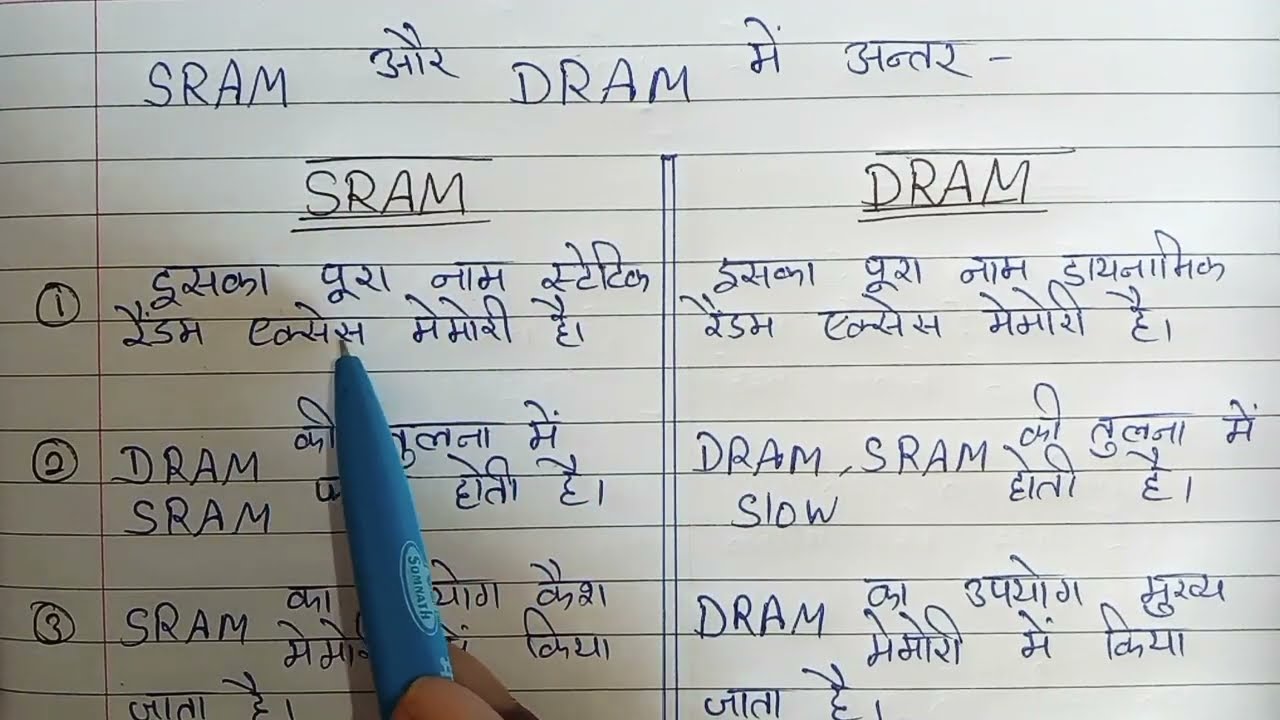 SRAM और DRAM में अन्तर -
SRAM
① इसका पूरा नाम स्टेटिक
रैंडम एक्सेस मेमोरी है।
② DRAM की तुलना में
SRAM होती है।
③ SRAM का कैश
में किया
जाता है।
DRAM
इसका पूरा नाम डायनामिक
रैंडम एक्सेस मेमोरी है।
DRAM, SRAM की तुलना में
Slow होती है।
DRAM का उपयोग मुख्य
मेमोरी में किया
जाता है।
SOMNATH